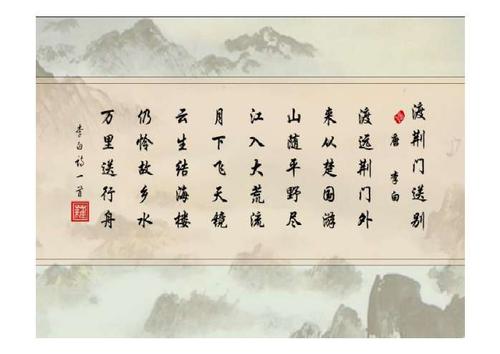 渡荆门送别
唐 李白
渡远荆门外
来从楚国游
山随平野尽
江入大荒流
月下飞天镜
云生结海楼
仍怜故乡水
万里送行舟
李白诗一首